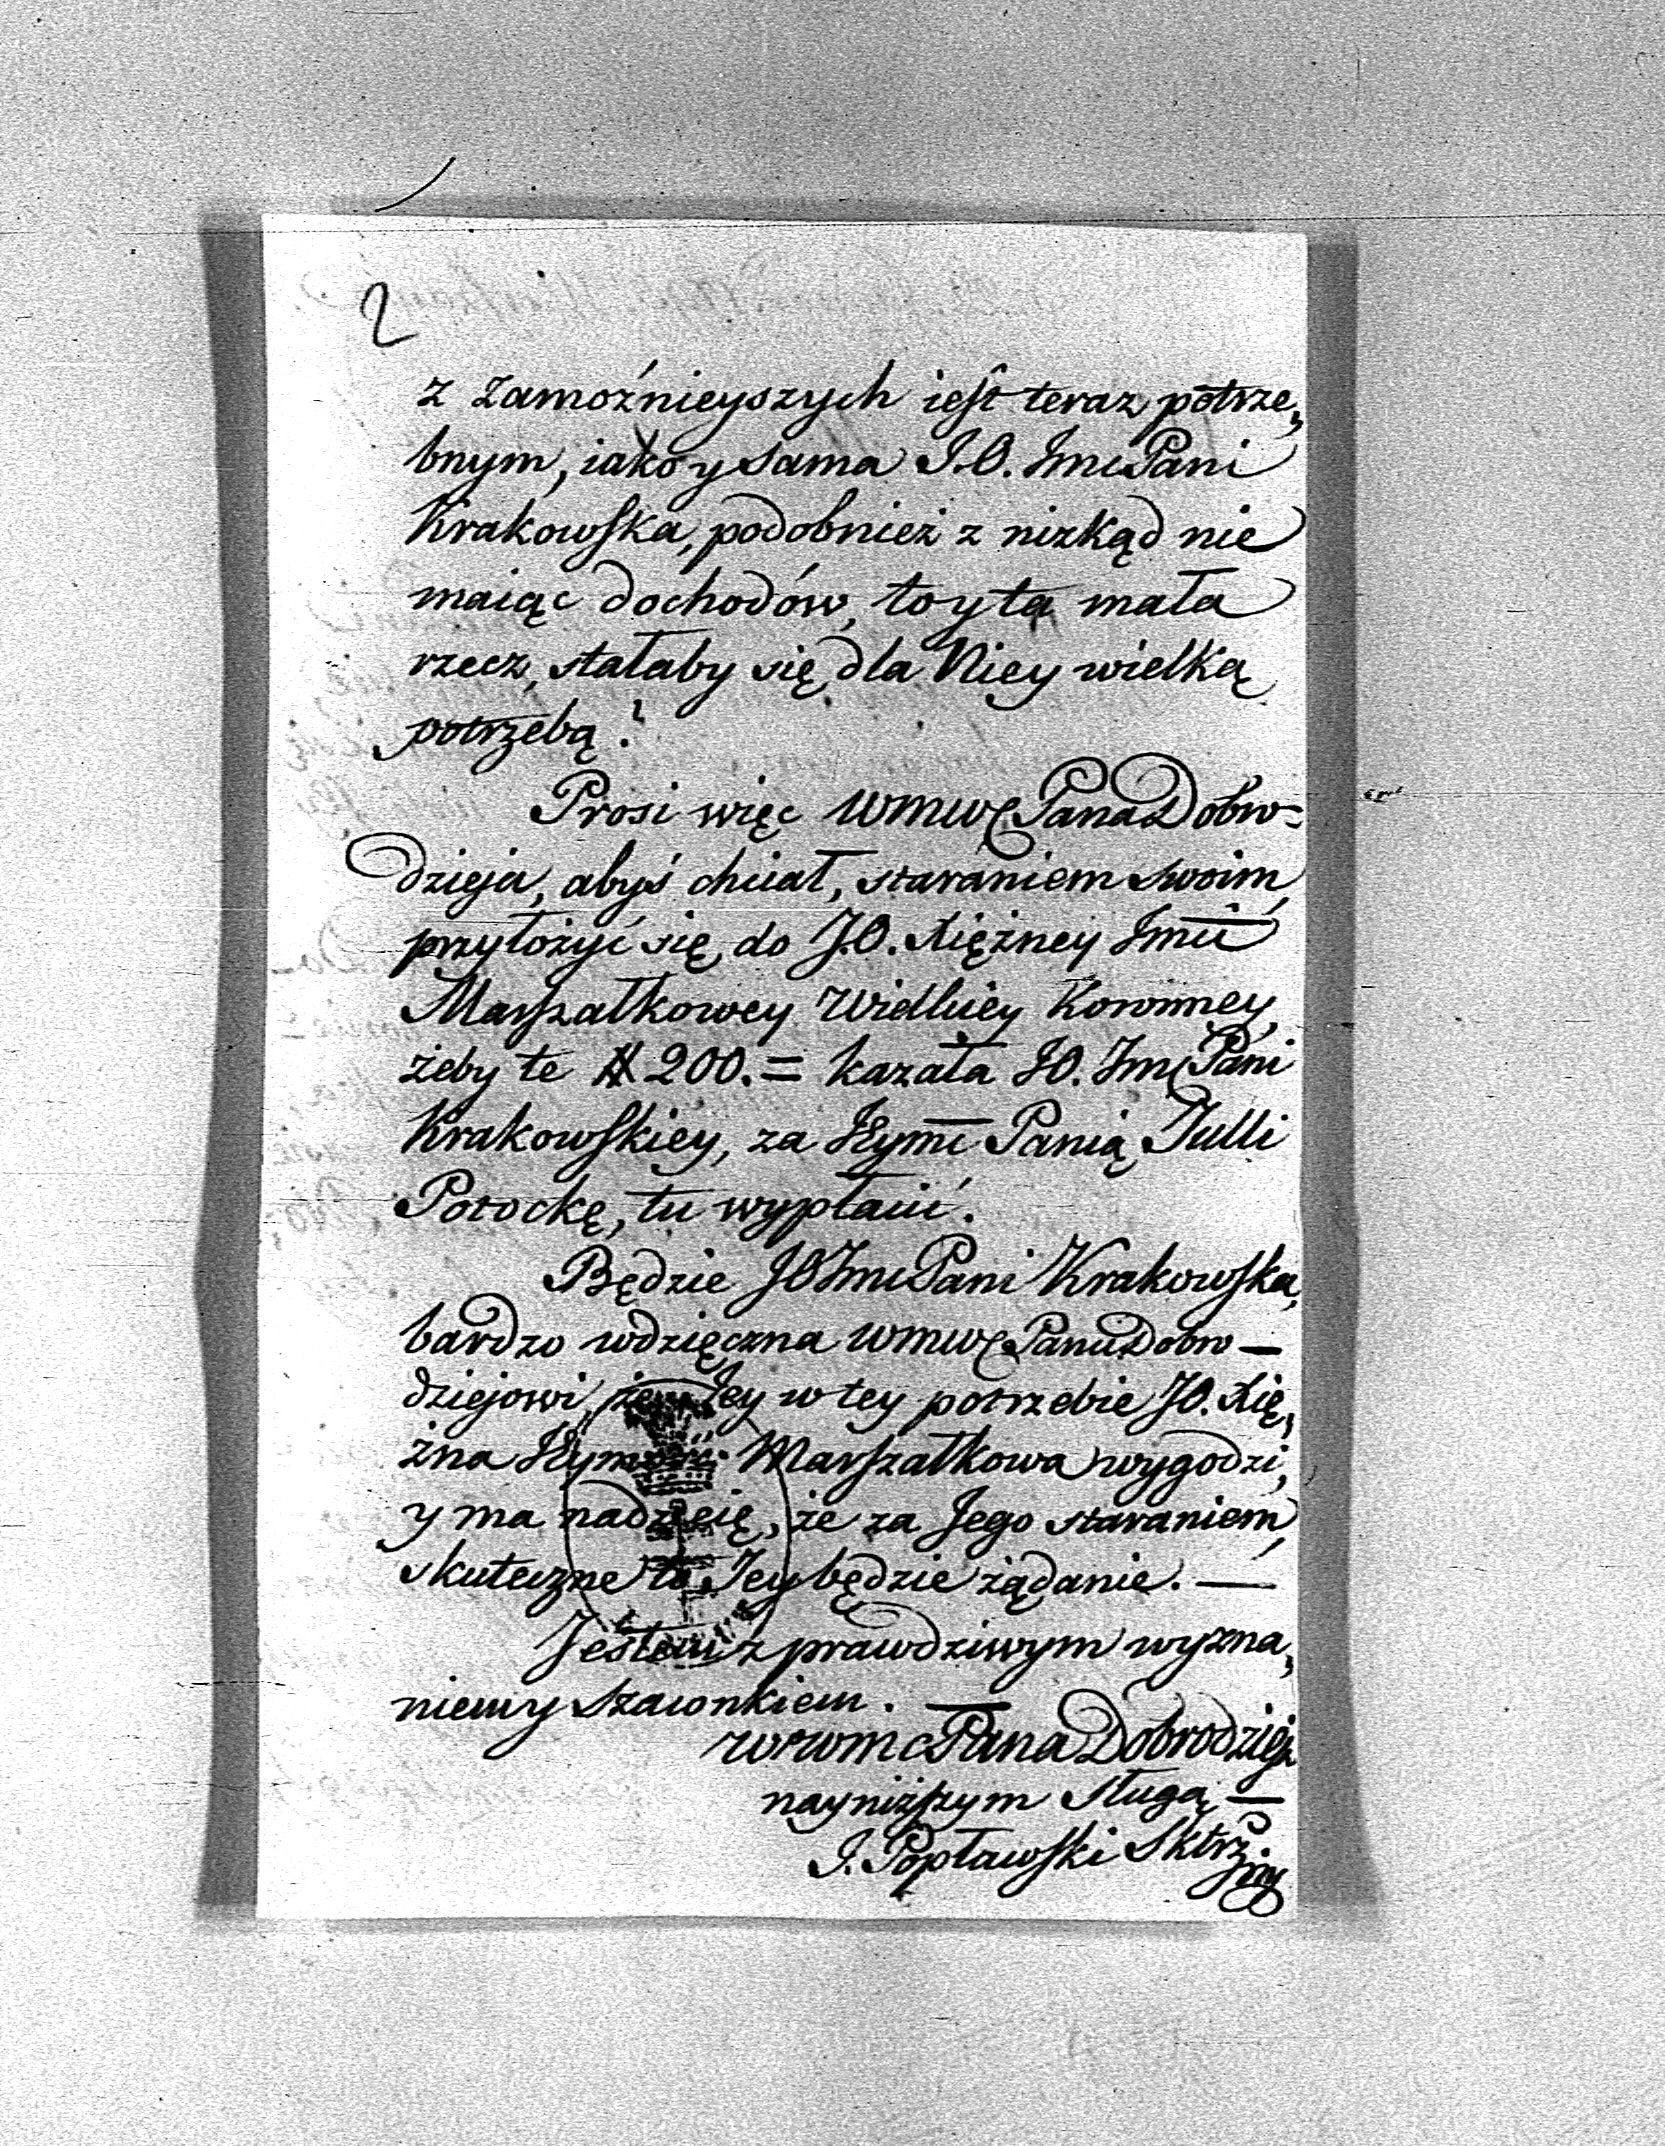 2
z zamożnieyszych iest teraz potrze,
bnym, iako y sama J.O. Jmc Pani
Krakowska, podobnież z nizkąd nie
maiąc dochodów, to y ta mała
rzecz, stałaby się dla Niey wielką
potrzebą?
Prosi więc WMWC Pana Dobro=
dzieja, abyś chciał, staraniem swoim
przyłożyć się do J.O. Xiężney Jmci
Marszałkowey Wielkiey Koronney,
żeby te # 200.= kazała JO. Jmc Pani
Krakowskiey, za Jeymć Panią Julli
Potockę, tu wypłacić.
Będzie JO Jmc Pani Krakowska,
bardzo wdzięczna WMWC Panu Dobro—
dziejowi, że Jey w tey potrzebie JO. Xię,
żna Jeymość Marszałkowa wygodzi,
y ma nadzieię, że za Jego staraniem
skuteczne to Jey będzie żądanie.—
Jestem z prawdziwym wyzna,
niem y szacunkiem. —
WWmc Pana Dobrodzieja
nayniższym sługą —
J. Popławski